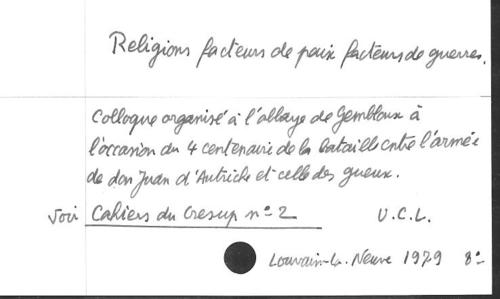 Religions facteurs de paix facteurs de guerres.
Colloque organisé à l'abbaye de Gembloux à
l'occasion du 4 centenaire de la bataille entre l'armée
de don Juan d'Autriche et celle des gueux.
voir Cahiers du Cresup n° 2 U.C.L.
Louvain-la-Neuve 1979 8°